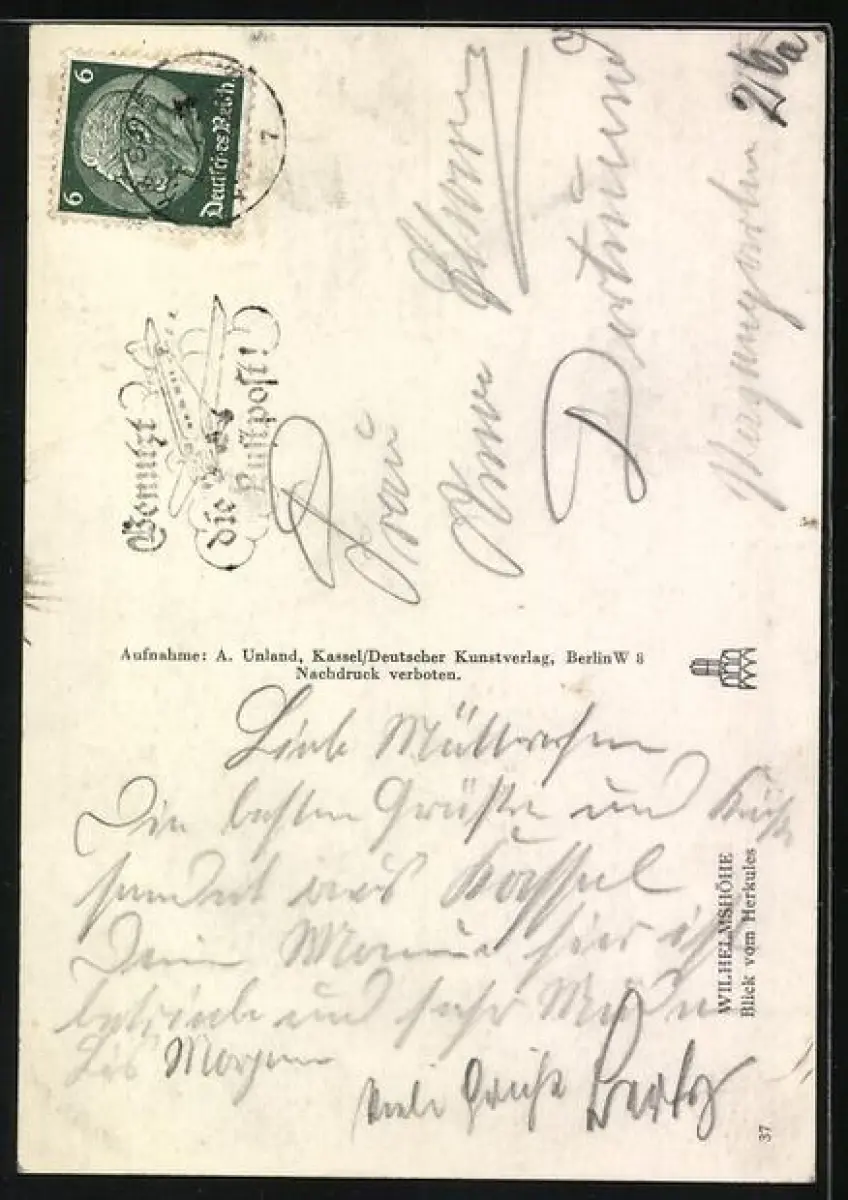 6
6
Deutsches Reich
7
Benutzt
die Luftpost!
Frau
Anna
Dortmund
26a
Aufnahme: A. Unland, Kassel/Deutscher Kunstverlag, Berlin W 8
Nachdruck verboten.
Liebe Mütterchen
Die besten Grüße und Küsse
sendet aus Kassel
Dein hier ist
betrieb und sehr
bis Morgen
viele Grüße
WILHELMSHÖHE
Blick vom Herkules
37